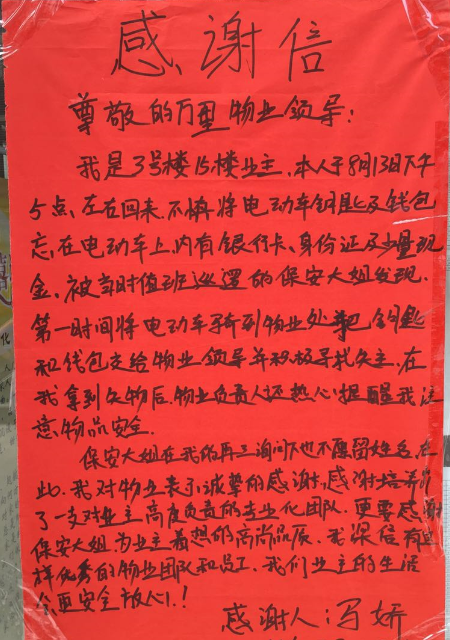 感谢信
尊敬的万里物业领导：
我是3号楼15楼业主，本人于8月13日下午
5点左右回来，不慎将电动车钥匙及钱包
忘在电动车上，内有银行卡、身份证及少量现
金，被当时值班巡逻的保安大姐发现，
第一时间将电动车骑到物业处，把钥匙
和钱包交给物业领导并积极寻找失主，在
我拿到失物后，物业负责人还热心提醒我注
意物品安全。
保安大姐在我的再三询问下也不愿留姓名，在
此，我对物业表示诚挚的感谢，感谢培养出
了一支对业主高度负责的专业化团队，更要感谢
保安大姐为业主着想的高尚品质，我深信有这
样优秀的物业团队和员工，我们业主的生活
会更安全放心！
感谢人：冯娇